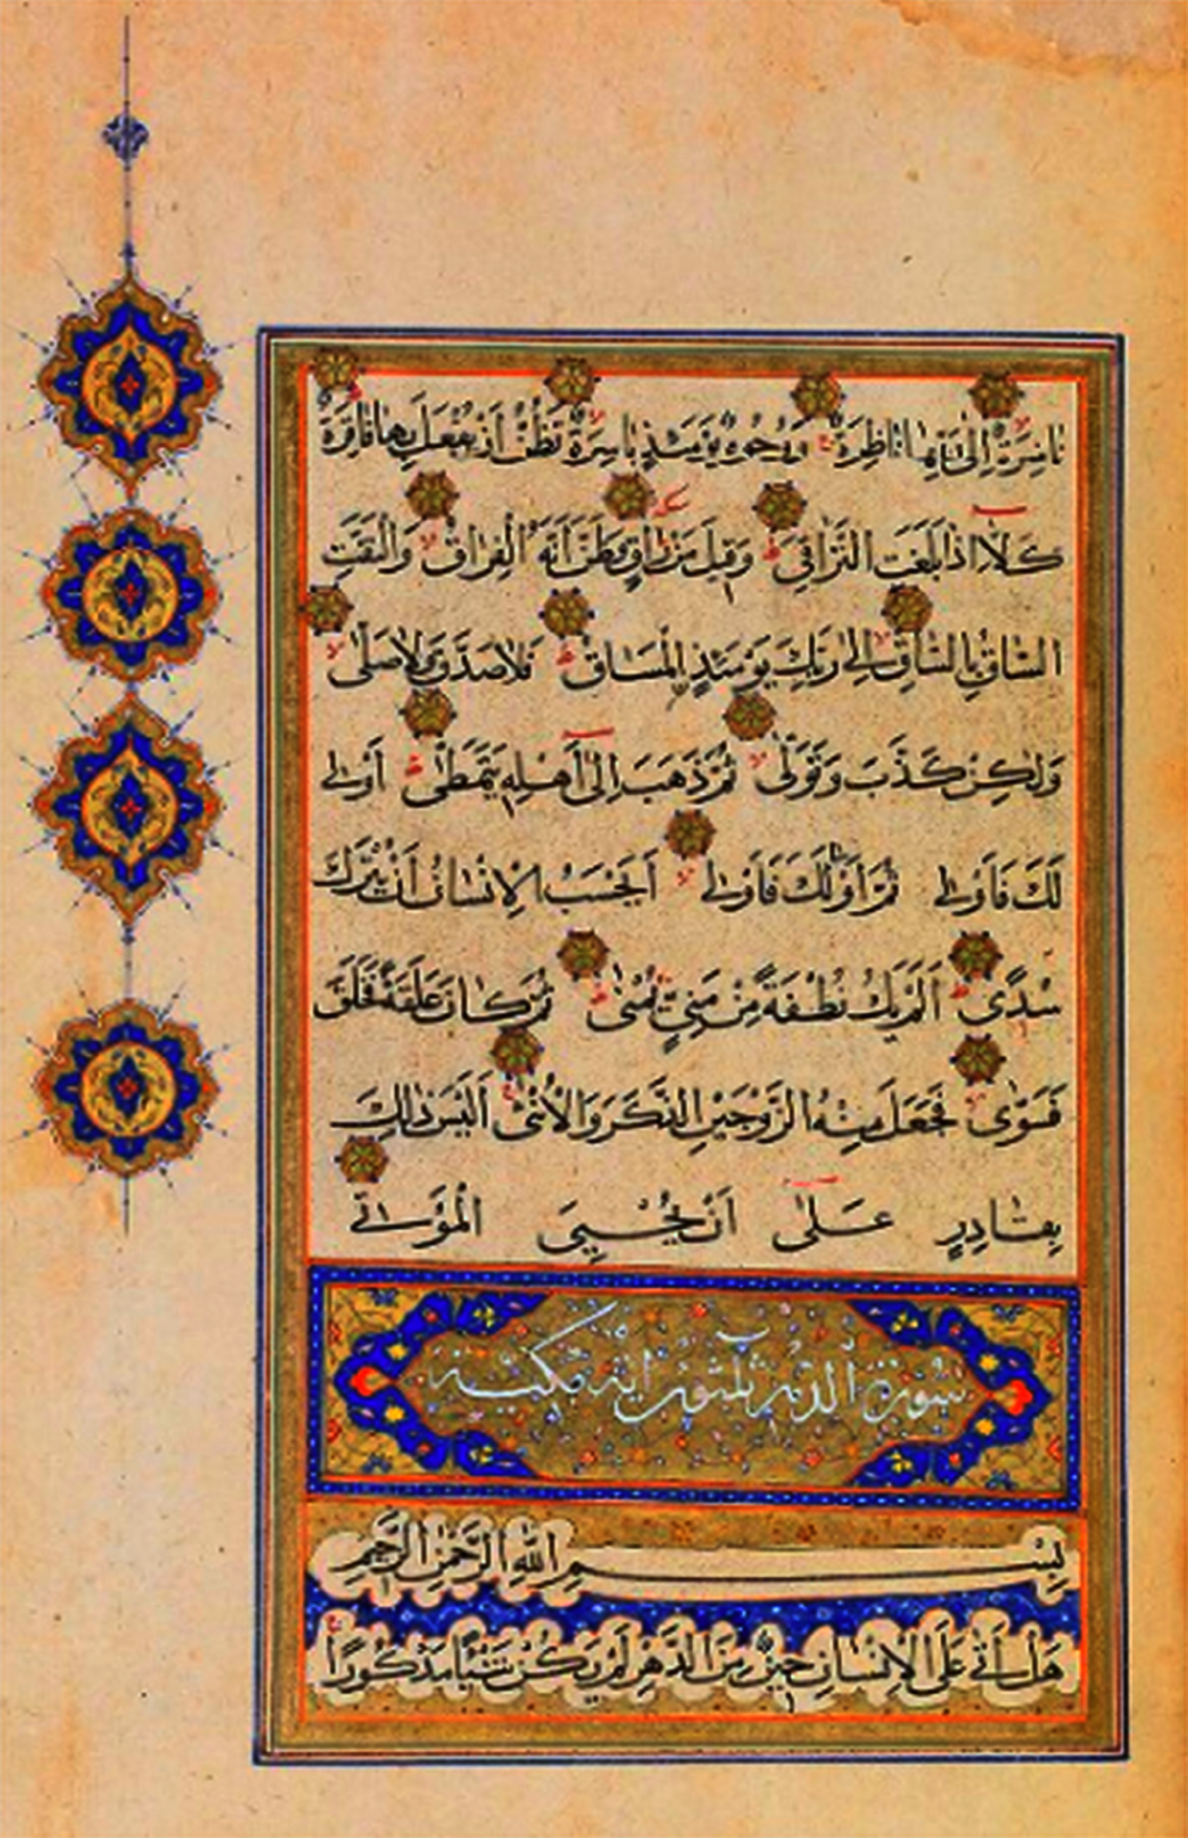 ناضِرَةٌ اِلىٰ رَبِّهَا نَاظِرَةٌ وَوُجُوهٌ يَوْمَئِذٍ بَاسِرَةٌ تَظُنُّ اَنْ يُفْعَلَ بِهَا فَاقِرَةٌ
كَلَّا اِذَا بَلَغَتِ التَّرَاقِيَ وَقِيلَ مَنْ رَاقٍ وَظَنَّ اَنَّهُ الْفِرَاقُ وَالْتَفَّتِ
السَّاقُ بِالسَّاقِ اِلىٰ رَبِّكَ يَوْمَئِذٍ الْمَسَاقُ فَلَا صَدَّقَ وَلَا صَلَّىٰ
وَلٰكِنْ كَذَّبَ وَتَوَلَّىٰ ثُمَّ ذَهَبَ اِلىٰ اَهْلِهِ يَتَمَطَّىٰ اَوْلىٰ
لَكَ فَاَوْلىٰ ثُمَّ اَوْلىٰ لَكَ فَاَوْلىٰ اَيَحْسَبُ الْاِنْسَانُ اَنْ يُتْرَكَ
سُدًى اَلَمْ يَكُ نُطْفَةً مِنْ مَنِيٍّ يُمْنىٰ ثُمَّ كَانَ عَلَقَةً فَخَلَقَ
فَسَوّٰى فَجَعَلَ مِنْهُ الزَّوْجَيْنِ الذَّكَرَ وَالْاُنْثىٰ اَلَيْسَ ذٰلِكَ
بِقَادِرٍ عَلىٰ اَنْ يُحْيِيَ الْمَوْتىٰ
سورة الدهر ثلثون اية مكية
بِسْمِ اللهِ الرَّحْمٰنِ الرَّحِيمِ
هَلْ اَتىٰ عَلَى الْاِنْسَانِ حِينٌ مِنَ الدَّهْرِ لَمْ يَكُنْ شَيْئًا مَذْكُورًا